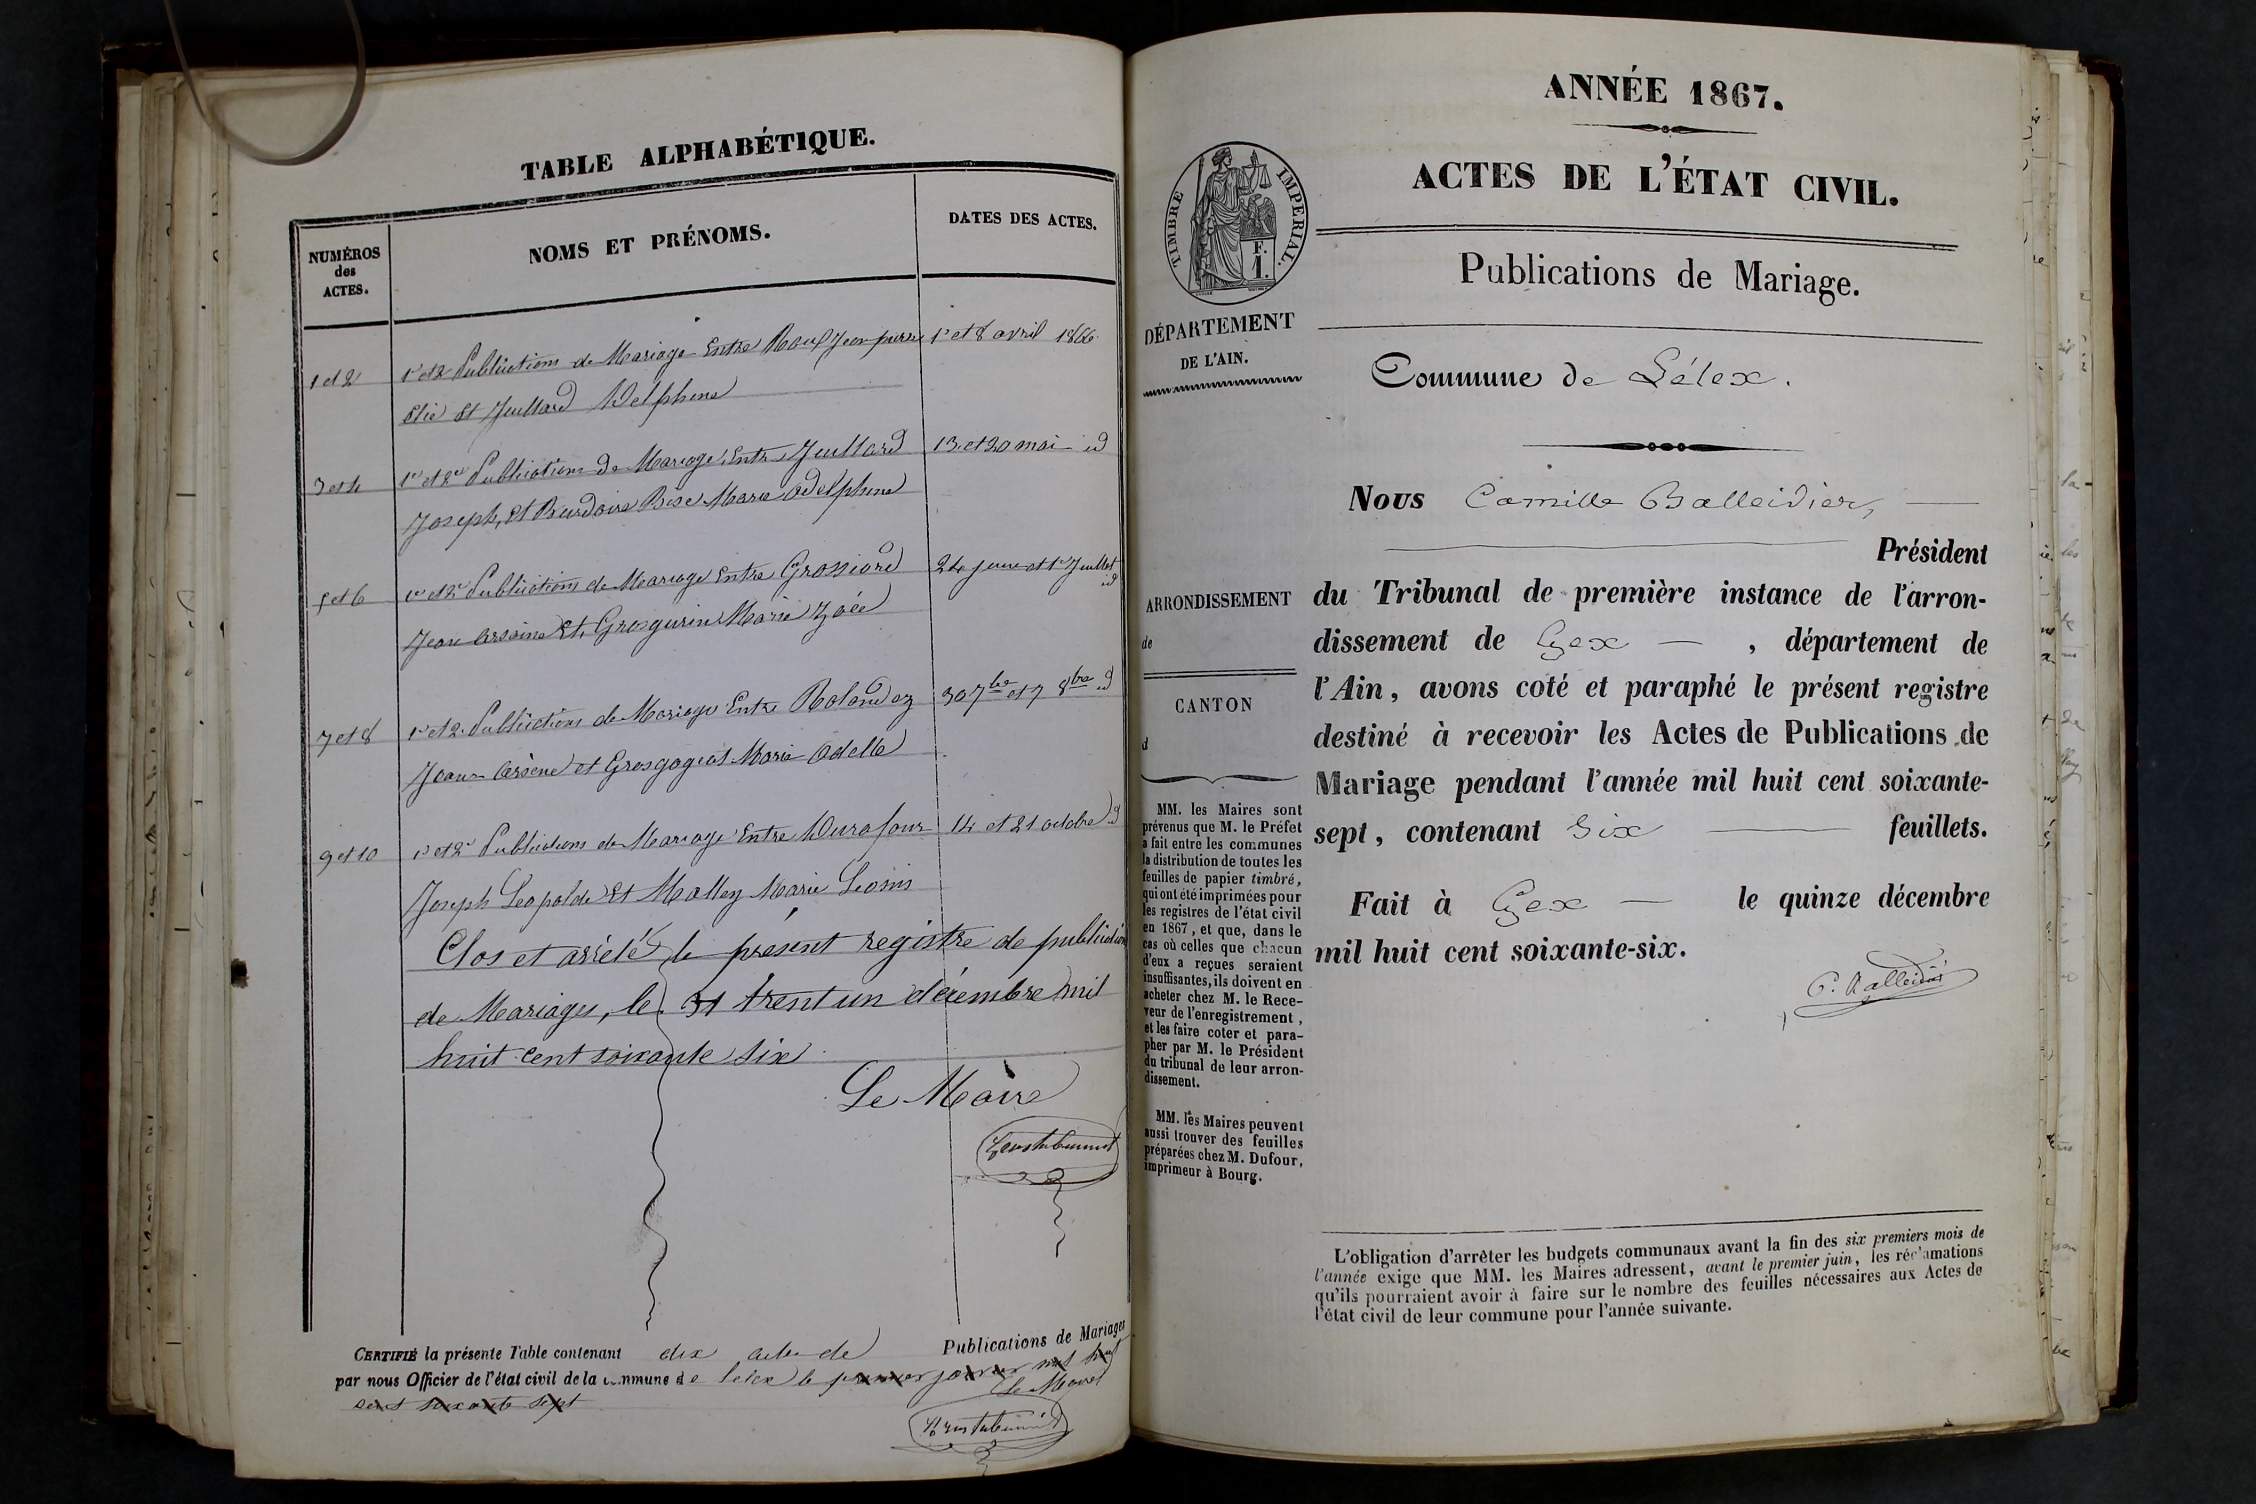 TABLE ALPHABÉTIQUE.
NUMÉROS
des
ACTES.
NOMS ET PRÉNOMS.
DATES DES ACTES.
1 et 2
1er et 2e Publications de Mariage Entre Roux Jean pierre
1er et 8 avril 1866
Elie Et Juillard Delphine
3 et 4
1er et 2e Publications de Mariage Entre Juillard
13 et 20 mai id
Joseph, Et Rose Marie adelphine
5 et 6
1er et 2e Publications de Mariage Entre Grossiord
24 juin et 1er Juillet
id
Jean arsaine Et Grosgurin Marie Zoée
7 et 8
1er et 2e Publications de Mariage Entre Rolandez
30 7bre et 7 8bre id
Jean arsène et Grosgogeat Marie Adelle
9 et 10
1er et 2e Publications de Mariage Entre Durafour
14 et 21 octobre id
Joseph Léopolde Et Malley Marie
Clos et arrêté le présent registre de publication
de Mariages, le 31 trent un décembre mil
huit cent soixante six
Le Maire
CERTIFIÉ la présente Table contenant dix actes de Publications de Mariages
par nous Officier de l'état civil de la commune de Lélex le premier janvier mil huit
cent soixante sept
Le Maire
ANNÉE 1867.
ACTES DE L'ÉTAT CIVIL.
TIMBRE IMPERIAL.
F.
1.
Publications de Mariage.
DÉPARTEMENT
DE L'AIN.
Commune de Lélex.
Nous Camille Balleidier,
Président
ARRONDISSEMENT
de
CANTON
d
du Tribunal de première instance de l'arron-
dissement de Gex, département de
l'Ain, avons coté et paraphé le présent registre
destiné à recevoir les Actes de Publications de
Mariage pendant l'année mil huit cent soixante-
sept, contenant Six feuillets.
Fait à Gex le quinze décembre
mil huit cent soixante-six.
C. Balleidier
MM. les Maires sont
prévenus que M. le Préfet
a fait entre les communes
la distribution de toutes les
feuilles de papier timbré,
qui ont été imprimées pour
les registres de l'état civil
en 1867, et que, dans le
cas où celles que chacun
d'eux a reçues seraient
insuffisantes, ils doivent en
acheter chez M. le Rece-
veur de l'enregistrement,
et les faire coter et para-
pher par M. le Président
du tribunal de leur arron-
dissement.
MM. les Maires peuvent
aussi trouver des feuilles
préparées chez M. Dufour,
imprimeur à Bourg.
L'obligation d'arrêter les budgets communaux avant la fin des six premiers mois de
l'année exige que MM. les Maires adressent, avant le premier juin, les réclamations
qu'ils pourraient avoir à faire sur le nombre des feuilles nécessaires aux Actes de
l'état civil de leur commune pour l'année suivante.